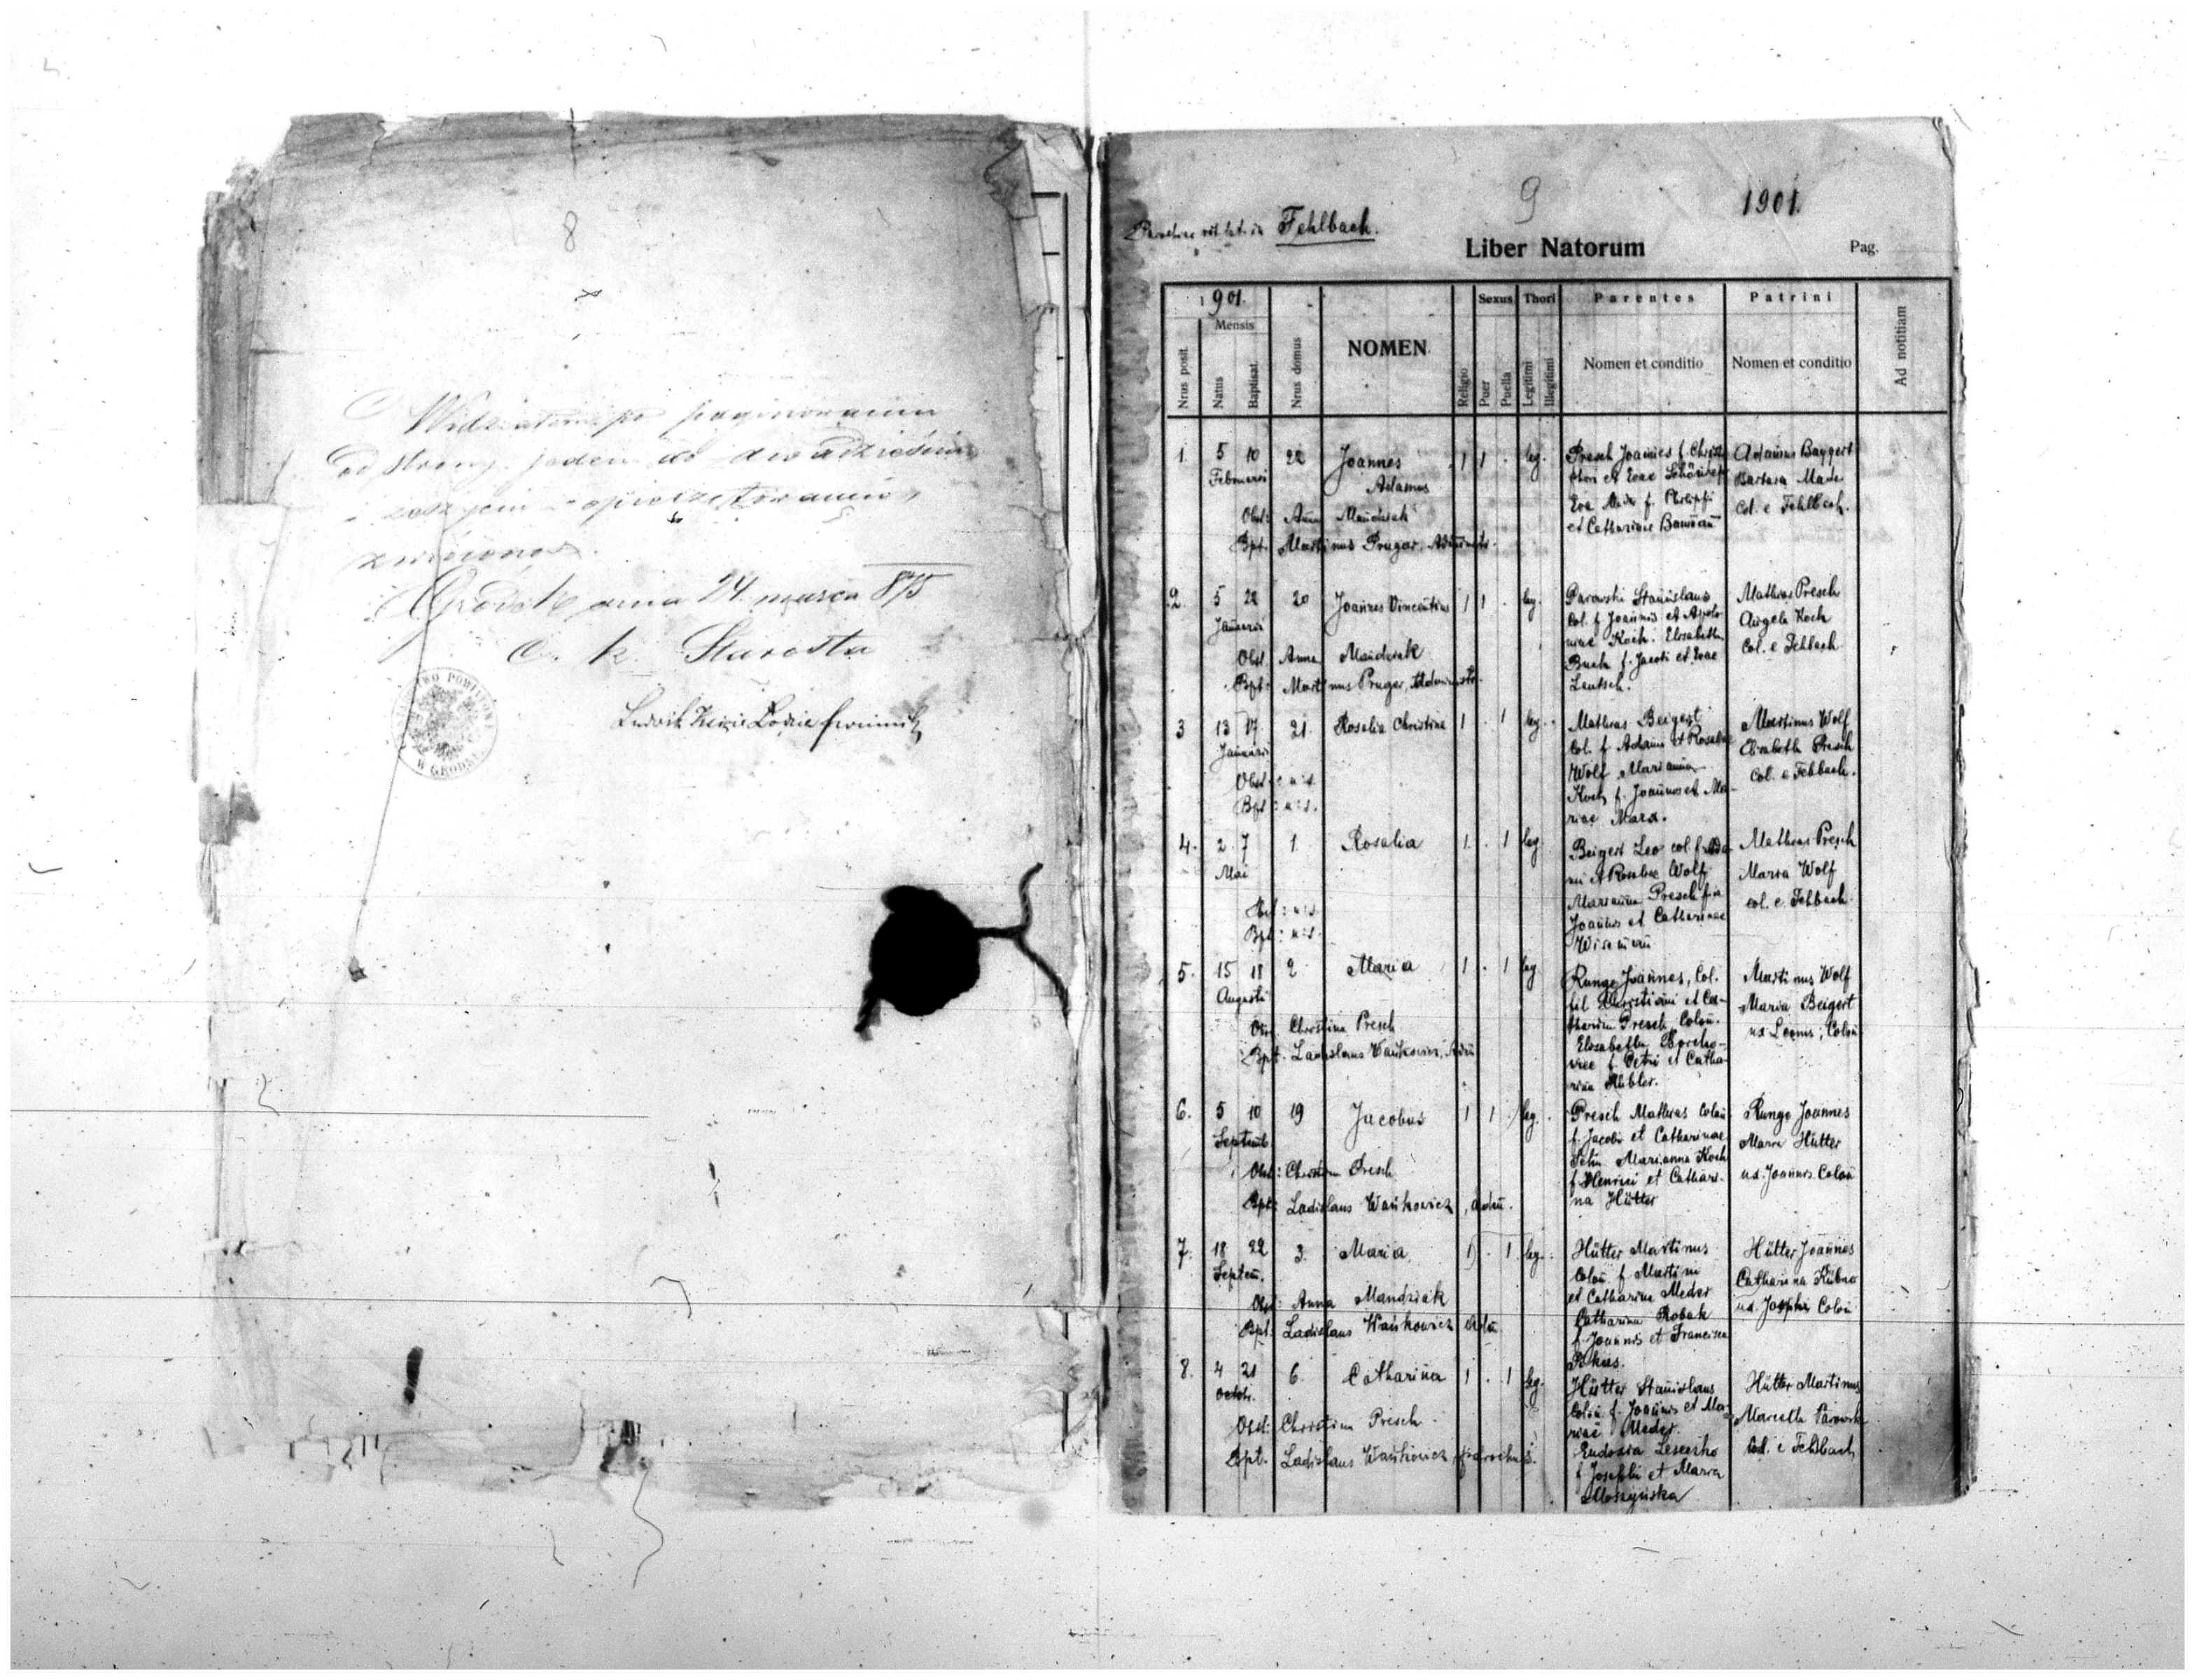 8
Widziałem po paginowaniu
od strony jeden do dwadzieścia
i zaszyciu i opieczętowaniu
zwrócono.
Gródek dnia 24 marca 875
C. k. Starosta
Ludwik
W GRÓDKU
9
1901.
rit. lat. in Fehlbach.
Liber Natorum
Pag.
1901.
Mensis
Nrus posit.
Natus
Baptisat.
Nrus domus
NOMEN
Religio
Sexus
Puer
Puella
Thori
Legitimi
Illegitimi
Parentes
Nomen et conditio
Patrini
Nomen et conditio
Ad notitiam
1. 5 10 22 Joannes 1 1 . leg. Presch Joannes f. Christ- Adamus Baygert
Februarii Adamus phori et Evae Barbara Mader
Eva Mader f. Philippi Col. e Fehlbach.
Obst: Anna Mandziak et Catharinae Baumann
Bpt. Martinus Prugar, Administr.
2. 5 22 20 Joannes Vincentius 1 1 . leg. Parowski Stanislaus Mathias Presch
Januarii Col. f. Joannis et Apolo- Angela Koch
niae Koch. Elisabetha Col. e Fehlbach
Obst. Anna Mandziak Buch f. Jacobi et Evae
Bpt: Martinus Prugar, Administr. Lautsch.
3 13 17 21. Rosalia Christina 1 . 1 leg. Mathias Beigert Martinus Wolf
Januarii Col. f. Adami et Rosaliae Elisabetha Presch
Wolf Marianna Col. e Fehlbach.
Obst: u: s. Koch f. Joannis et Ma-
Bpt: u: s. riae Marx.
4. 2 7 1. Rosalia 1 . 1 leg. Beigert Leo col. f. Ada- Mathias Presch
Mai mi et Rosaliae Wolf Maria Wolf
Marianna Presch fia col. e Fehlbach.
Obst: u: s. Joannis et Catharinae
Bpt: u: s. Wisemann
5. 15 18 2 Maria 1 . 1 leg. Runge Joannes, Col. Martinus Wolf
Augusti fil Christiani et Ca- Maria Beigert
tharina Presch, Colon. ux Leonis, Colon
Obst. Christina Presch Elisabetha
Bpt. Ladislaus Wańkowicz, Adm f. Petri et Catha-
rina Kibler.
6. 5 10 19 Jacobus 1 1 . leg. Presch Mathias Colon Runge Joannes
Septemb. f. Jacobi et Catharinae Maria Hütter
Obst: Christina Presch Marianna Koch ux. Joannis Colon
f. Henrici et Cathari-
Bpt: Ladislaus Wańkowicz, Adm. na Hütter
7. 18 22 3. Maria 1 . 1 leg. Hütter Martinus Hütter Joannes
Septem. Colon f. Martini Catharina Kübno
et Catharina Meder ux. Josephi Colon
Obst: Anna Mandziak Catharina Robak
Bpt: Ladislaus Wańkowicz Adm f. Joannis et Francisca
8. 4 21 6. Catharina 1 . 1 leg. Hütter Stanislaus Hütter Martinus
Octob. Colon f. Joannis et Ma- Marcella Parowska
riae Meder. Col. e Fehlbach
Obst: Christina Presch Eudoxia Leszczko
Bpt. Ladislaus Wańkowicz, parochus. f. Josephi et Maria
Moszyńska